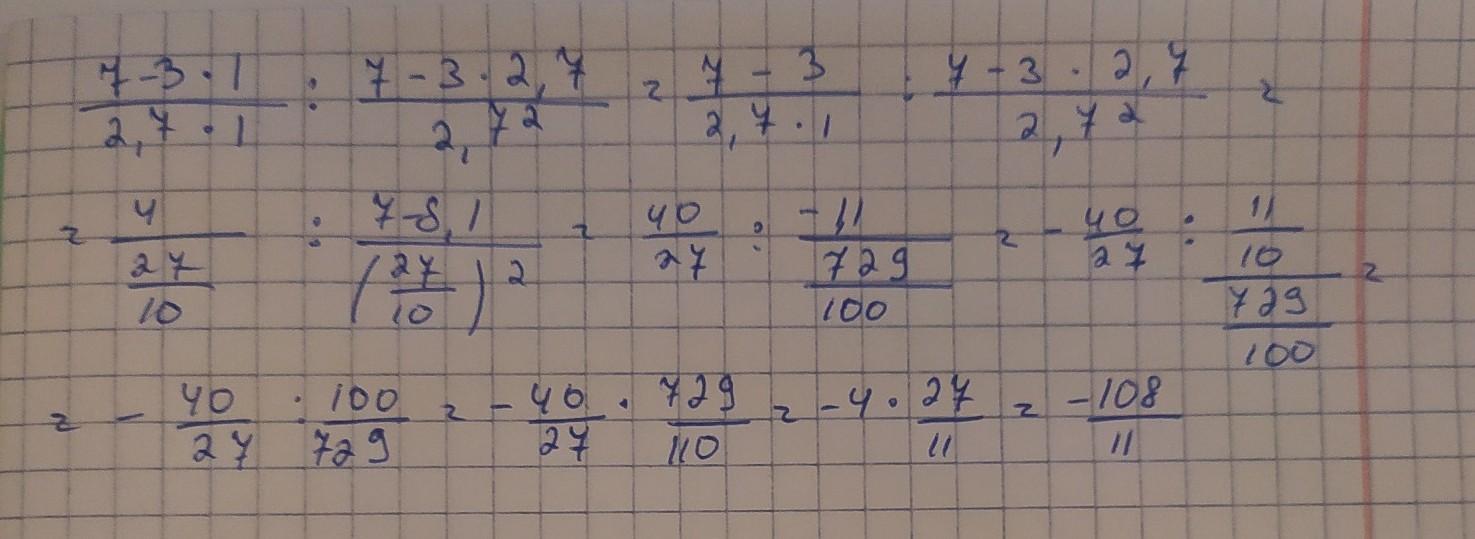 (7-3·1)/(2,7·1) : (7-3·2,7)/(2,7²) = (7-3)/(2,7·1) : (7-3·2,7)/(2,7²) =
= 4/(27/10) : (7-8,1)/((27/10)²) = 40/27 : (-11)/(729/100) = -40/27 : (11/10)/(729/100) =
= -40/27 : 100/729 = -40/27 · 729/110 = -4·27/11 = -108/11